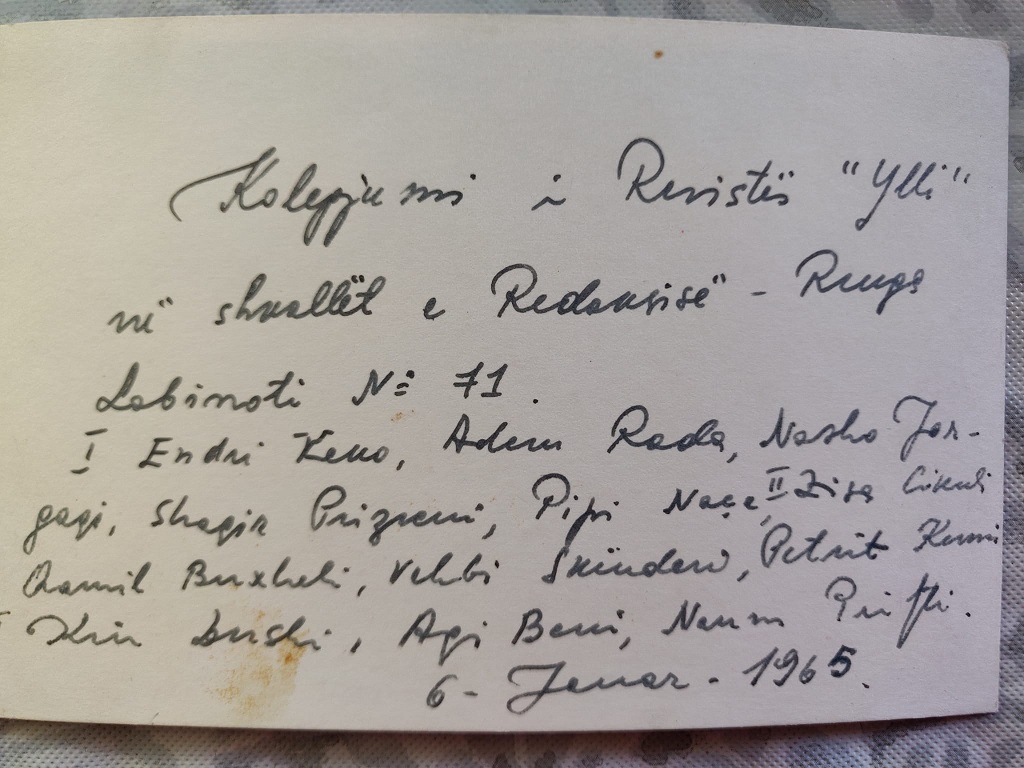 Kolegjiumi i Revistës "Ylli"
në shkallët e Redaksisë - Ruga
Labinoti Nº 71.
I Endri Keko, Adem Rada, Nasho Jor-
gaqi, Shaqir Prizreni, Pipi Naçe, II Ziza Cikuli
Qamil Buxheli, Vehbi Skënderi, Petrit Kumi
Dushi, Agi Beni, Naum Prifti.
6 - Janar - 1965.